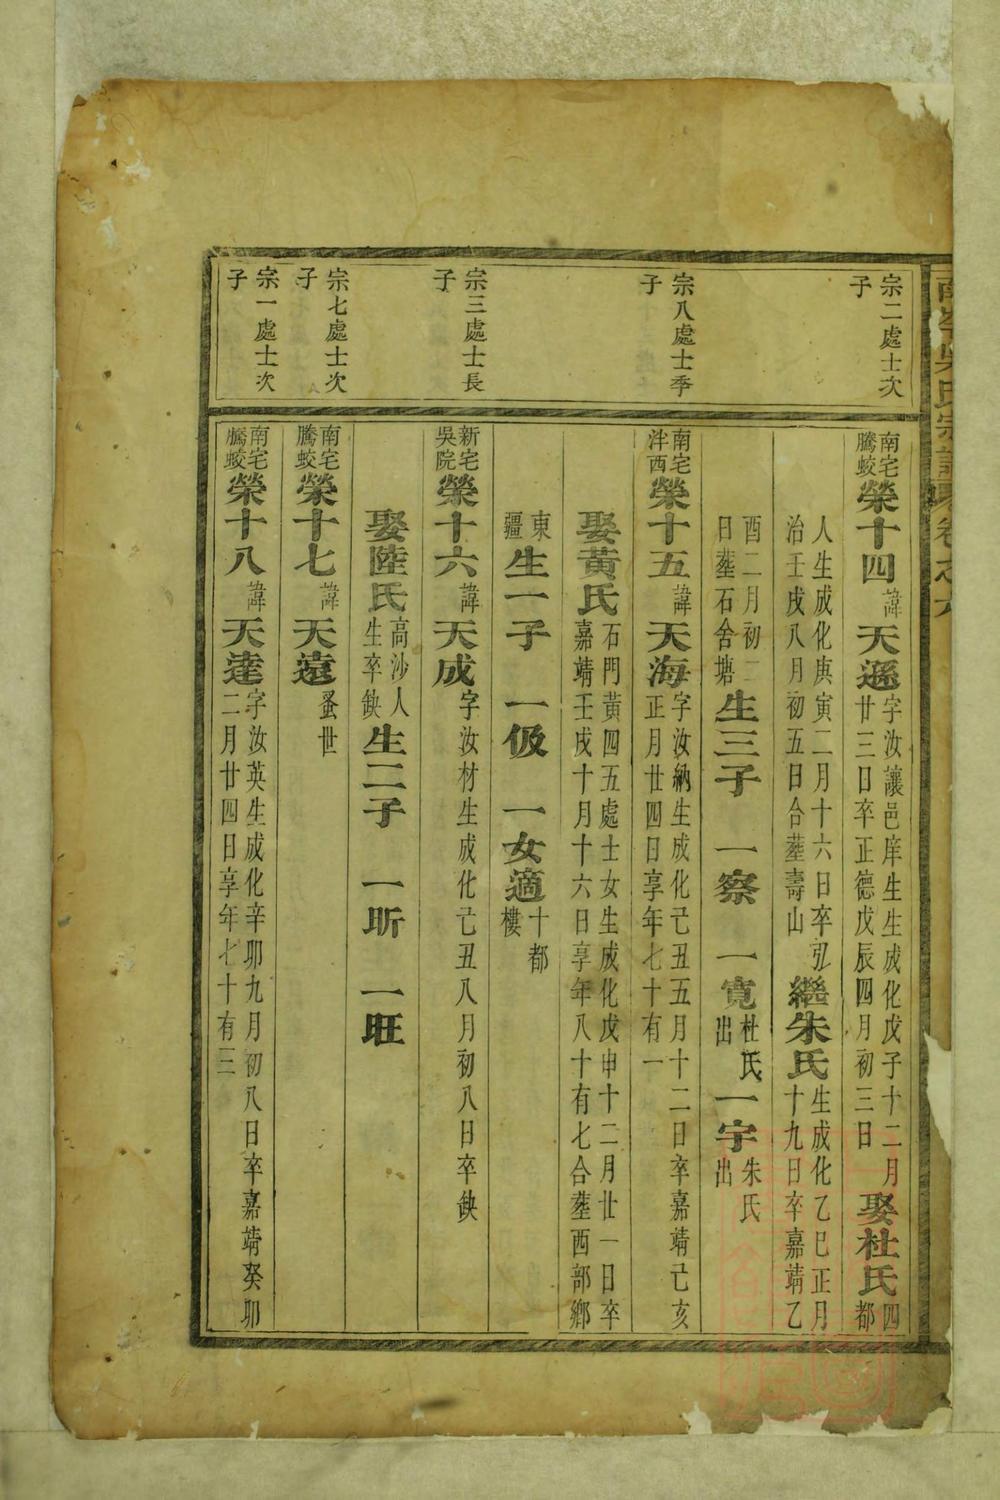 吳氏宗譜
卷之六
宗二處士次
子
南宅
騰蛟
榮十四
諱
天遜
字汝讓邑庠生生成化戊子十二月
廿三日卒正德戊辰四月初三日
娶杜氏
四
都
人生成化庚寅二月十六日卒弘
治壬戌八月初五日合塟壽山
繼朱氏
生成化乙巳正月
十九日卒嘉靖乙
酉二月初二
日塟石舍塘
生三子 一察 一寬
杜氏
出
一宇
朱氏
出
宗八處士季
子
南宅
泮西
榮十五
諱
天海
字汝納生成化己丑五月十二日卒嘉靖己亥
正月廿四日享年七十有一
娶黃氏
石門黃四五處士女生成化戊申十二月廿一日卒
嘉靖壬戌十月十六日享年八十有七合塟西部鄉
東
疆
生一子 一伋 一女適
十都
樓
宗三處士長
子
新宅
吳院
榮十六
諱
天成
字汝材生成化己丑八月初八日卒缺
娶陸氏
高沙人
生卒缺
生二子 一昕 一旺
宗七處士次
子
南宅
騰蛟
榮十七
諱
天遠
蚤世
宗一處士次
子
南宅
騰蛟
榮十八
諱
天達
字汝英生成化辛卯九月初八日卒嘉靖癸卯
二月廿四日享年七十有三